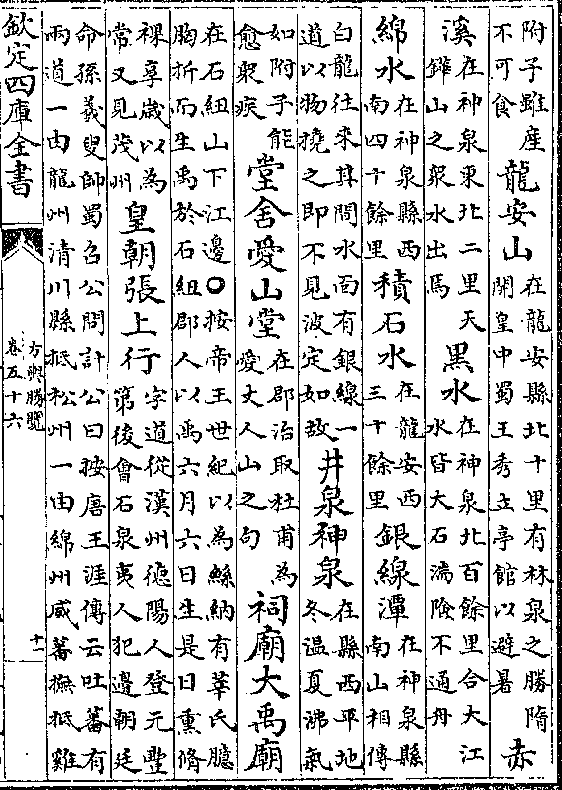 附子雖產
不可食
龍安山
在龍安縣北十里有林泉之勝隋
開皇中蜀王秀立亭館以避暑
赤
溪
在神泉東北二里天
山之衆水出焉
黑水
在神泉北百餘里合大江
水皆大石湍險不通舟
綿水
在神泉縣西
南四十餘里
積石水
在龍安西
三十餘里
銀線潭
在神泉縣
南山相傳
白龍往來其間水面有銀線一
道以物撓之即不見波定如故
井泉神泉
在縣西平地
冬溫夏沸氣
如附子能
愈衆疾
堂舍愛山堂
在郡治取杜甫為
愛丈人山之句
祠廟大禹廟
在石紐山下江邊○按帝王世紀以為鯀納有莘氏臆
胸折而生禹於石組郡人以禹六月六日生是日熏脩
祼享歲以為
常又見茂州
皇朝張上行
字道從漢州德陽人登元豐
第後會石泉夷人犯邊朝廷
命孫羲叟師蜀召公問計公曰按唐王涯傳云吐蕃有
兩道一由龍州清川縣抵松州一由綿州威蕃撫抵雞
欽定四庫全書
方輿勝覽
卷五十六
十一